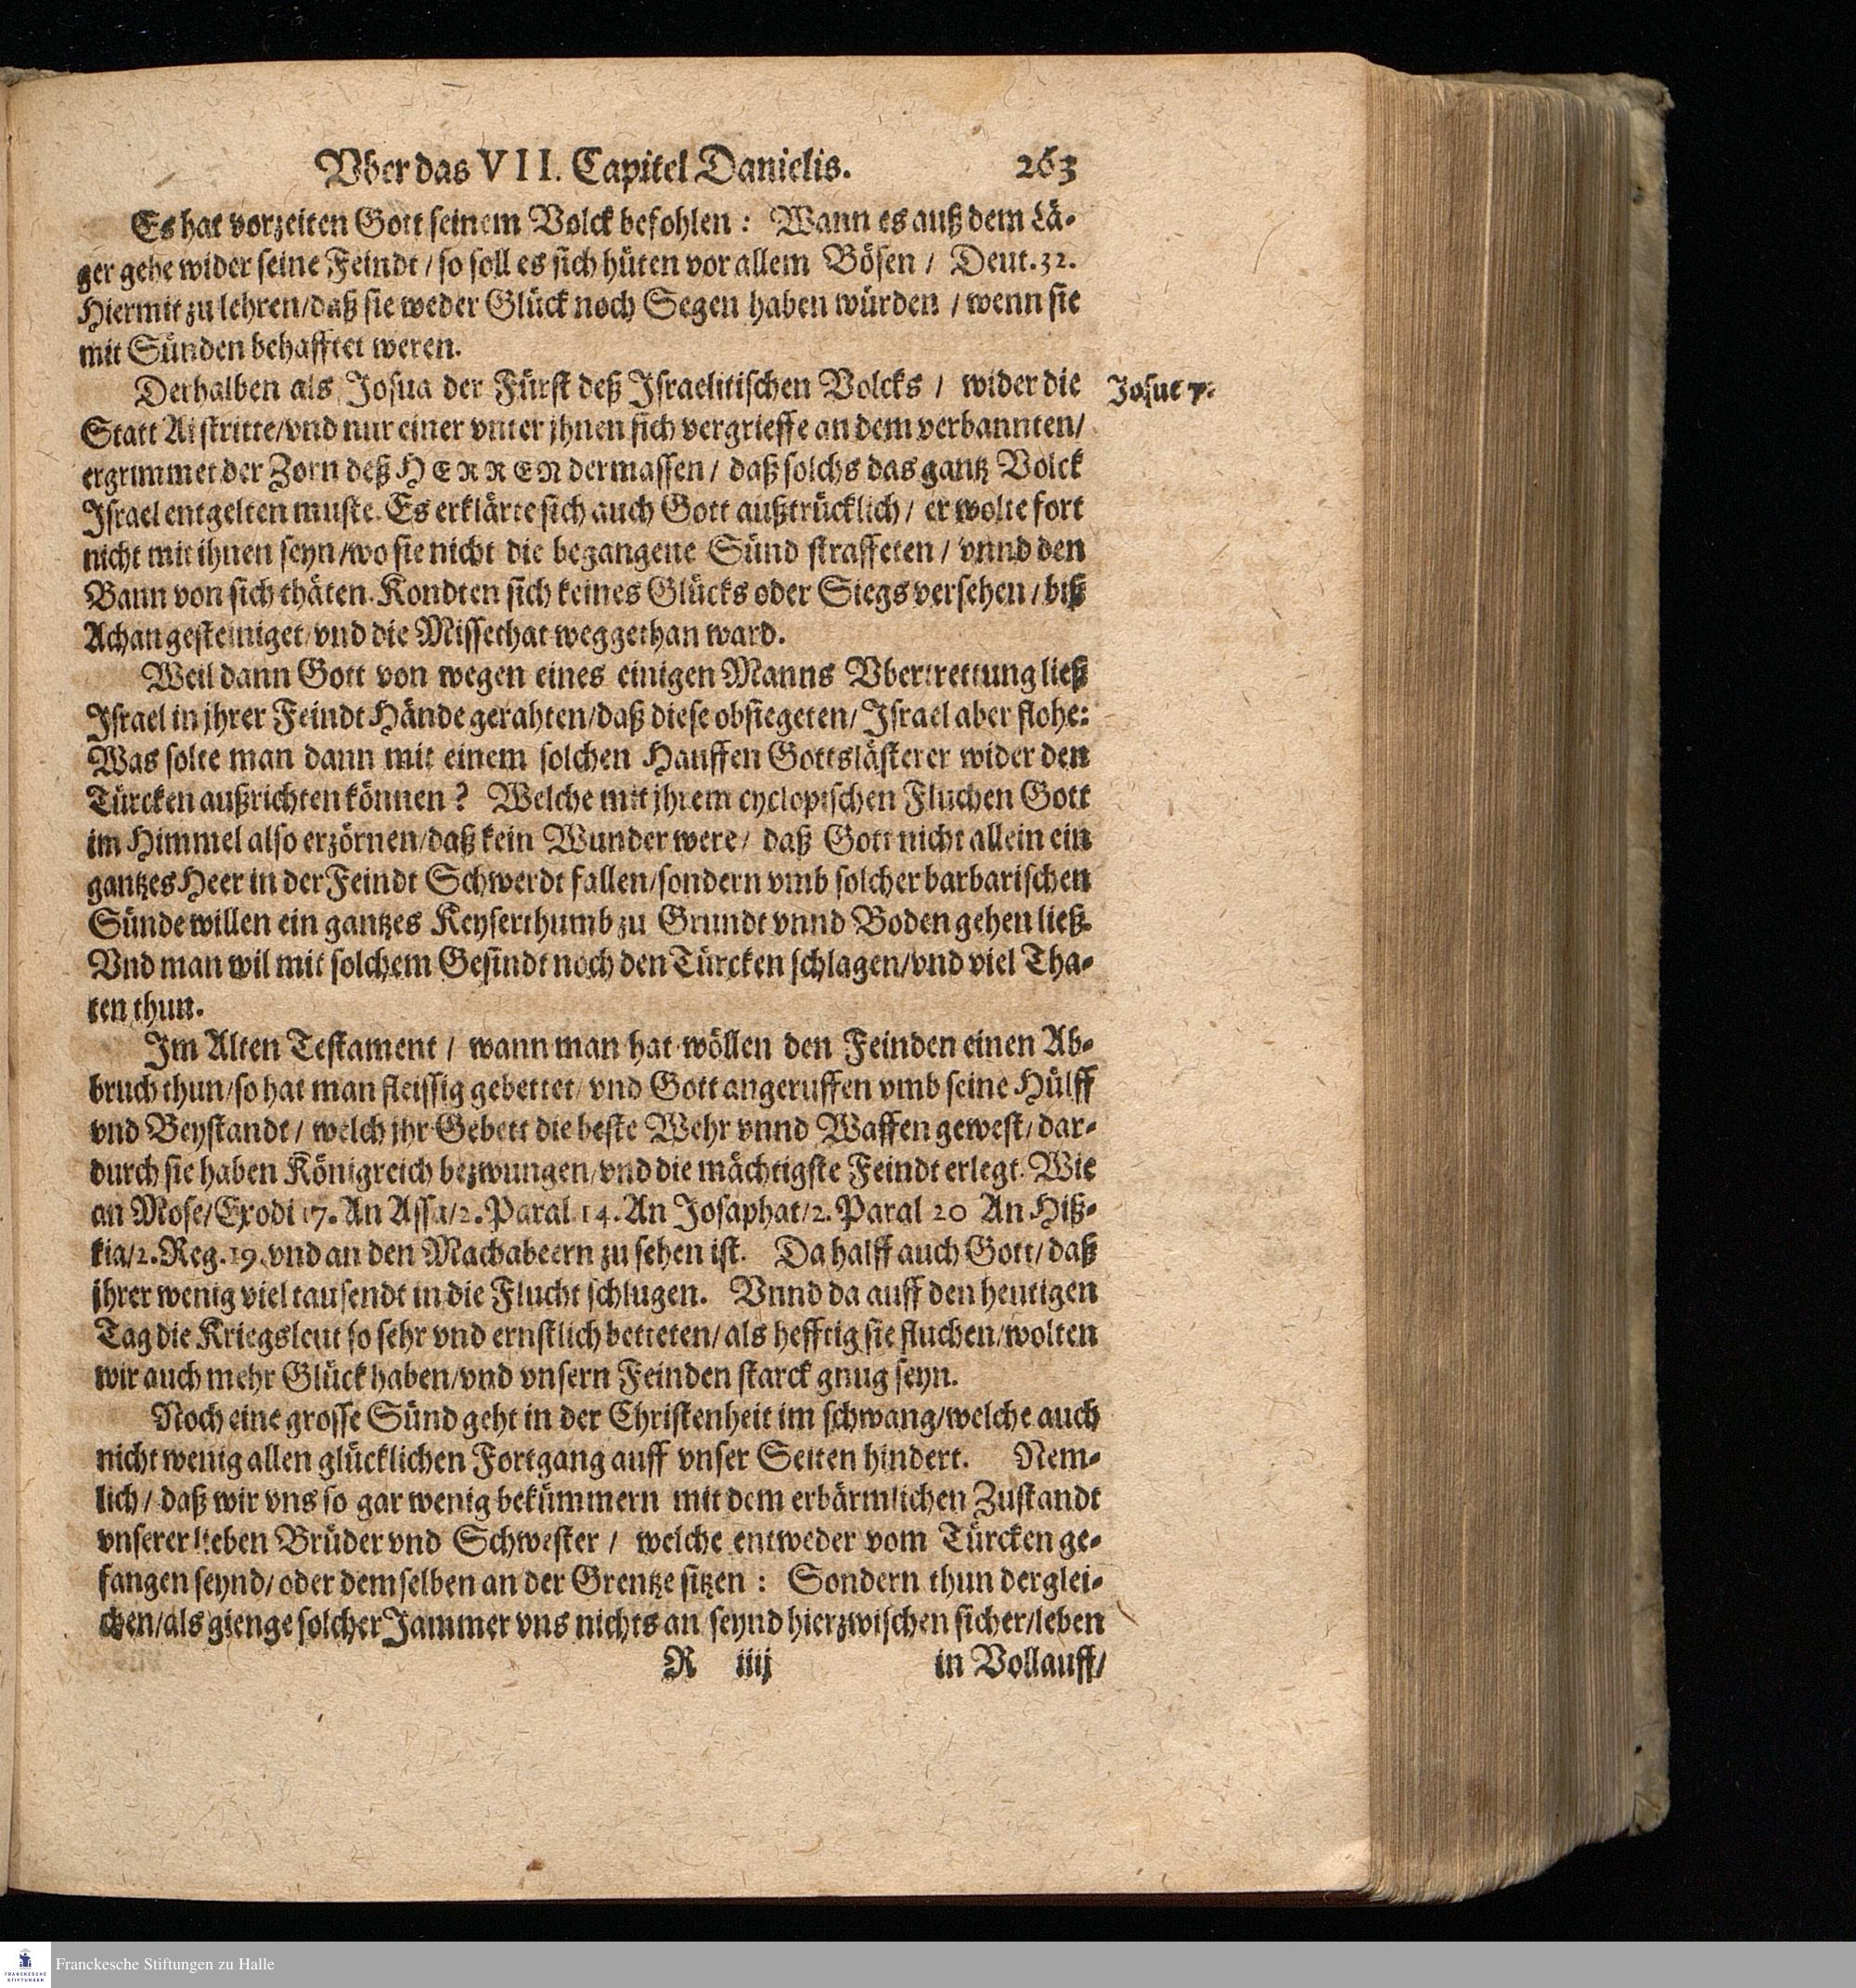 Vber das VII. Capitel Danielis. 263
Es hat vorzeiten Gott seinem Volck befohlen: Wann es auß dem Lä-
ger gehe wider seine Feindt / so soll es sich hüten vor allem Bösen / Deut. 32.
Hiermit zu lehren/daß sie weder Glück noch Segen haben würden / wenn sie
mit Sünden behafftet weren.
Derhalben als Josua der Fürst deß Israelitischen Volcks / wider die
Josue 7.
Statt Ai stritte/vnd nur einer vnter jhnen sich vergrieffe an dem verbannten/
ergrimmet der Zorn deß HERREN dermassen / daß solchs das gantz Volck
Israel entgelten muste. Es erklärte sich auch Gott außtrücklich / er wolte fort
nicht mit ihnen seyn/wo sie nicht die begangene Sünd straffeten / vnnd den
Bann von sich thäten. Kondten sich keines Glücks oder Siegs versehen / biß
Achan gesteiniget/vnd die Missethat weggethan ward.
Weil dann Gott von wegen eines einigen Manns Vbertrettung ließ
Israel in jhrer Feindt Hände gerahten/daß diese obsiegeten/ Israel aber flohe:
Was solte man dann mit einem solchen Hauffen Gottslästerer wider den
Türcken außrichten können? Welche mit jhrem cyclopischen Fluchen Gott
im Himmel also erzörnen/daß kein Wunder were/ daß Gott nicht allein ein
gantzes Heer in der Feindt Schwerdt fallen/sondern vmb solcher barbarischen
Sünde willen ein gantzes Keyserthumb zu Grundt vnnd Boden gehen ließ.
Vnd man wil mit solchem Gesindt noch den Türcken schlagen/vnd viel Tha-
ten thun.
Im Alten Testament / wann man hat wöllen den Feinden einen Ab-
bruch thun/so hat man fleissig gebettet/ vnd Gott angeruffen vmb seine Hülff
vnd Beystandt / welch jhr Gebett die beste Wehr vnnd Waffen gewest/ dar-
durch sie haben Königreich bezwungen/vnd die mächtigste Feindt erlegt. Wie
an Mose/Exodi 17. An Assa/2. Paral. 14. An Josaphat/2. Paral 20 An Hiß-
kia/2. Reg. 19. vnd an den Machabeern zu sehen ist. Da halff auch Gott/ daß
jhrer wenig viel tausendt in die Flucht schlugen. Vnnd da auff den heutigen
Tag die Kriegsleut so sehr vnd ernstlich betteten/ als hefftig sie fluchen/wolten
wir auch mehr Glück haben/vnd vnsern Feinden starck gnug seyn.
Noch eine grosse Sünd geht in der Christenheit im schwang/welche auch
nicht wenig allen glücklichen Fortgang auff vnser Seiten hindert. Nem-
lich / daß wir vns so gar wenig bekümmern mit dem erbärmlichen Zustandt
vnserer lieben Brüder vnd Schwester / welche entweder vom Türcken ge-
fangen seynd/ oder demselben an der Grentze sitzen: Sondern thun derglei-
chen/als gienge solcher Jammer vns nichts an seynd hierzwischen sicher/leben
R iiij in Vollauff/
FRANCKESCHE
STIFTUNGEN
Franckesche Stiftungen zu Halle